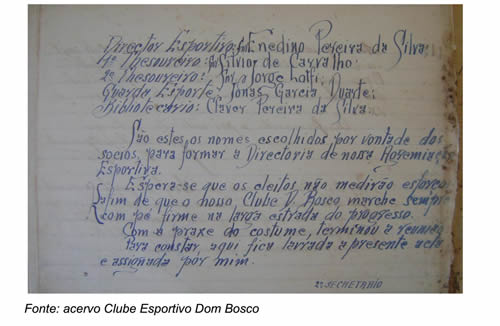 Director Esportivo: Snr Enedino Pereira da Silva;
1º Thesoureiro: Snr Silvio de Carvalho;
2º Thesoureiro: Snr Jorge Lotfi;
Guarda Esporte: Jonas Garcia Duarte;
Bibliotecario: Claver Pereira da Silva.
São estes, os nomes escolhidos por vontade dos
socios, para formar a Directoria de nossa Agremiação
Esportiva.
Espera-se que os eleitos não medirão esforços
afim de que o nosso, Clube D. Bosco, marche sempre
com pé firme na larga estrada do progresso.
Com a praxe do costume, terminou a reunião
Para constar, aqui fica lavrada a presente acta
e assignada por mim.
2º SECRETARIO
Fonte: acervo Clube Esportivo Dom Bosco